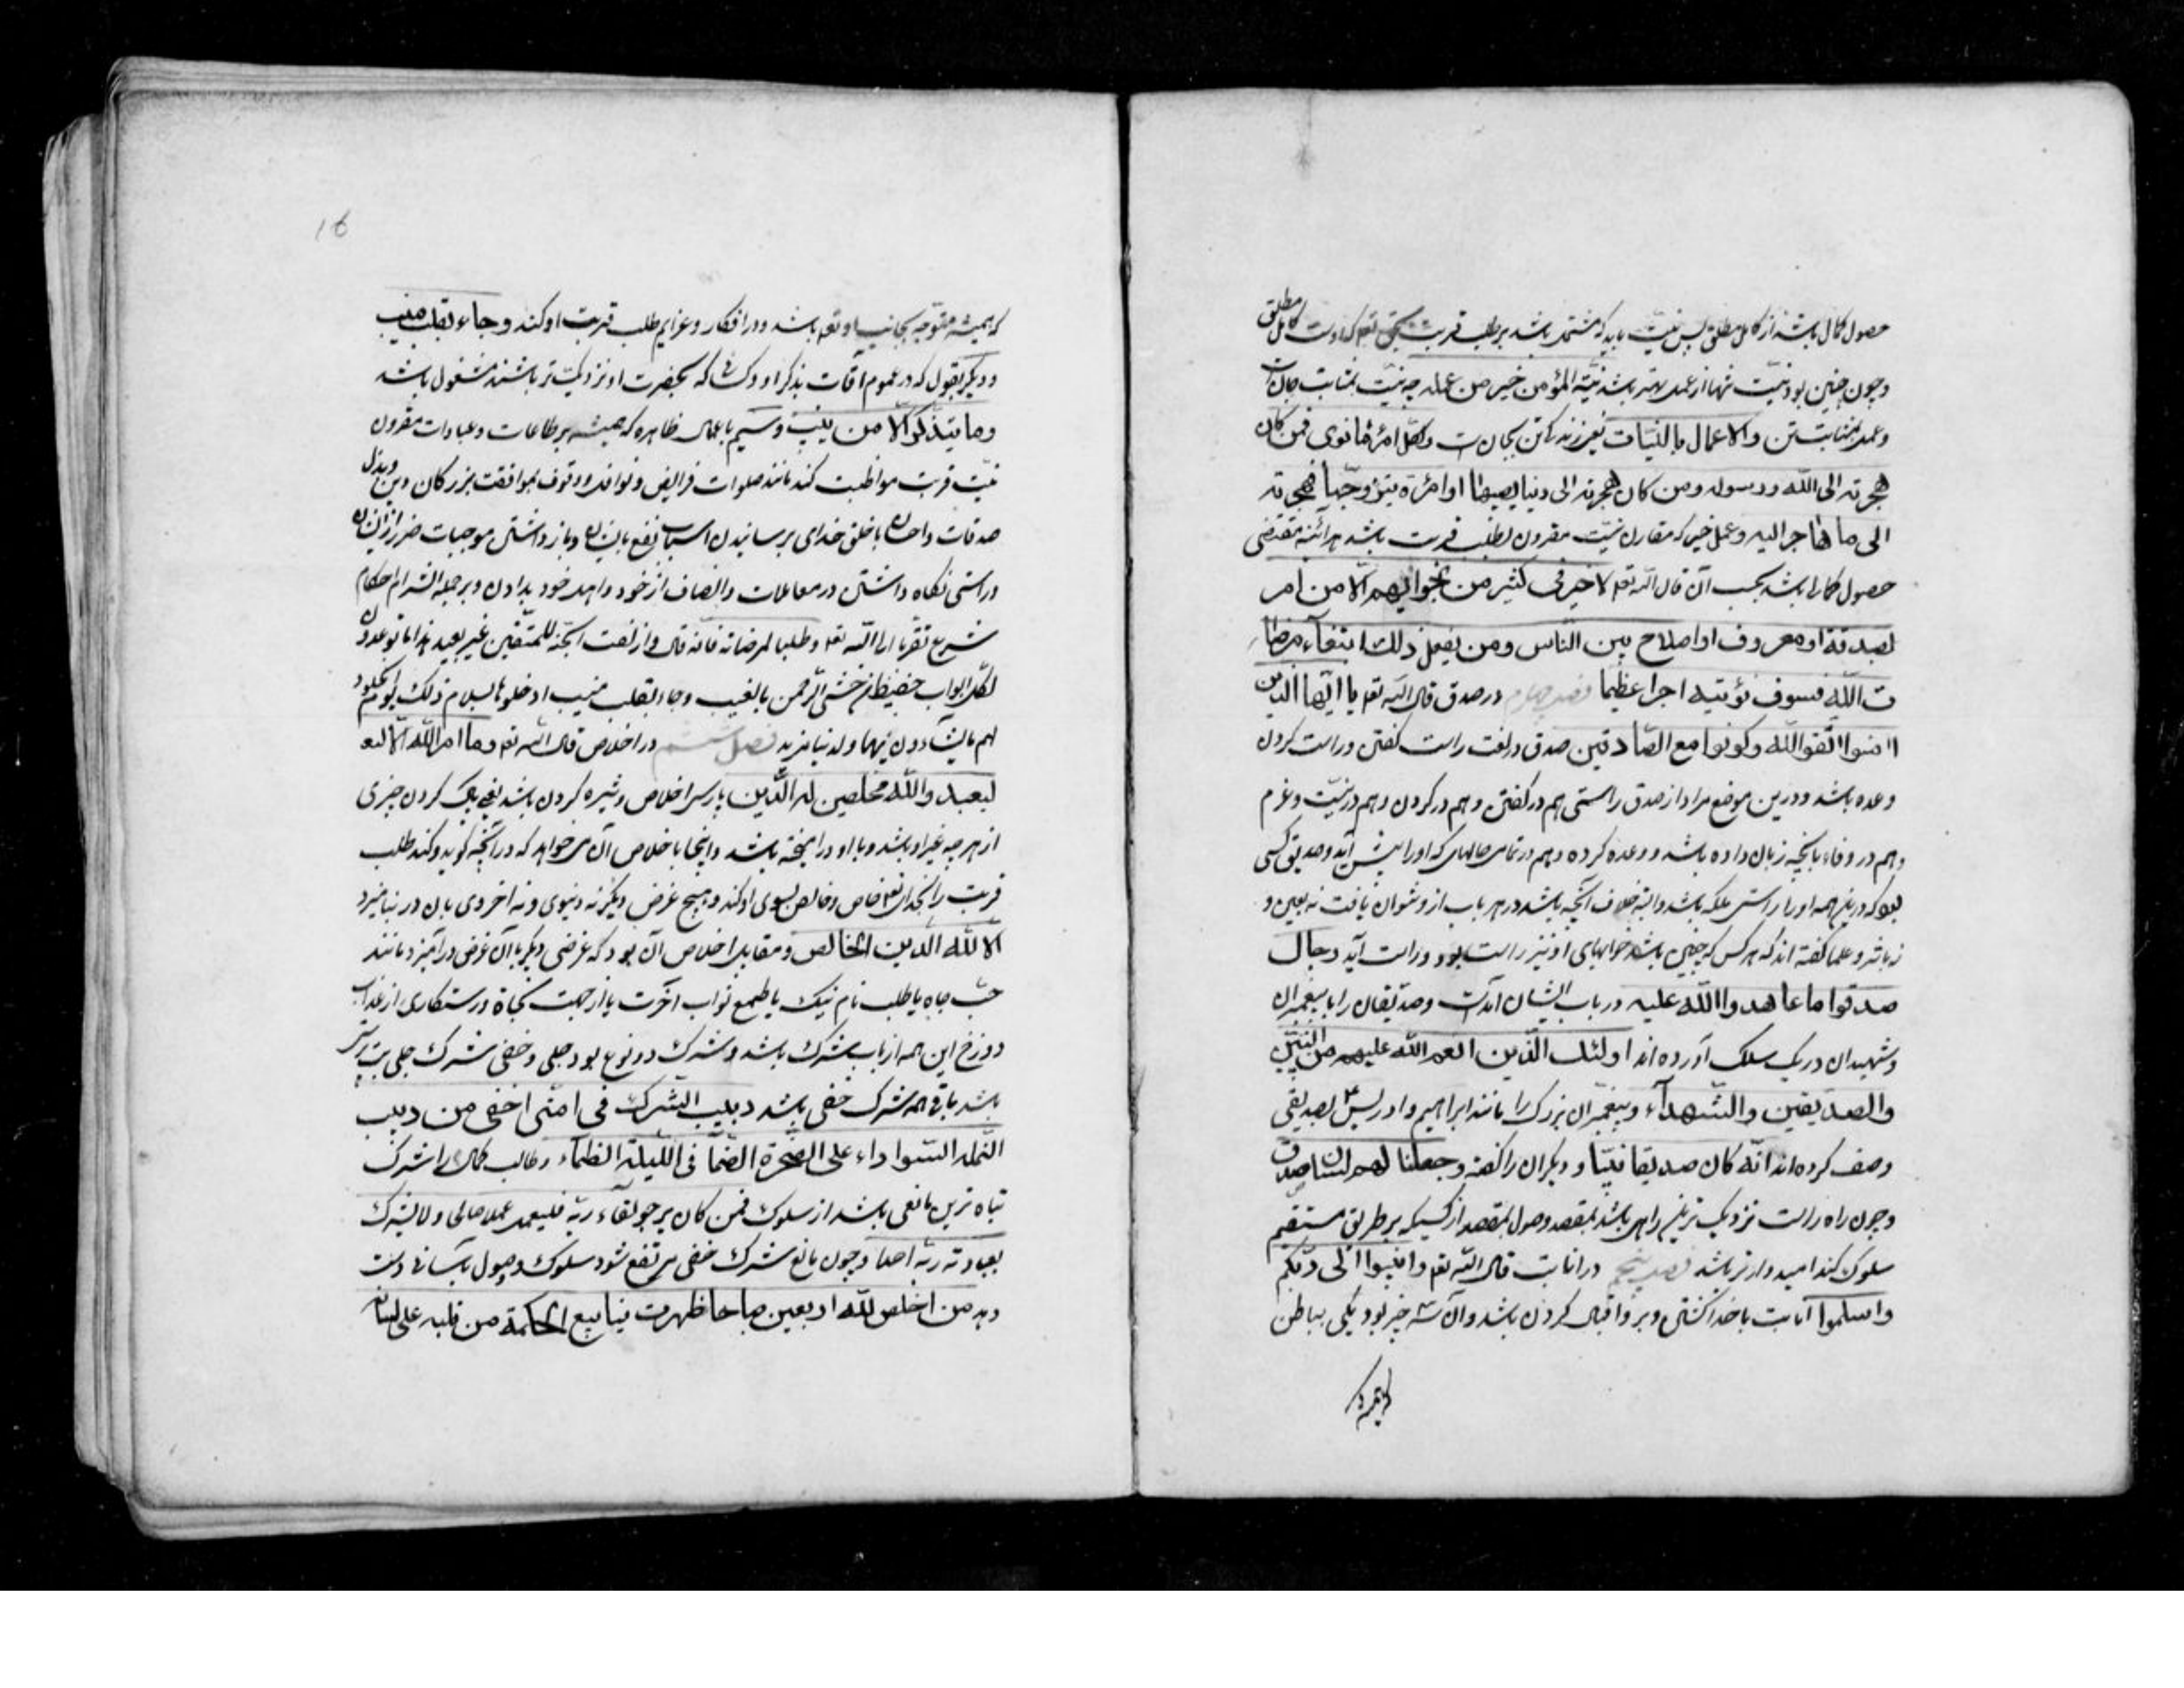 حصول کمال باشد از کامل مطلق پس نیت باید که مشتمل باشد بر طلب قربت بحق تعلی که اوست کامل مطلق
و چون چنین بود نیت تنها از عمل بهتر باشد نیّة المؤمن خیر من عمله چه نیّت بمثابت جان است
و عمل بمثابت تن والاعمال بالنیّات یعنی زندگی تن بجان است ولکلّ امرئ مانوی فمن کان
هجرته الی الله ورسوله ومن کان هجرته الی دنیا یصیبها او امرئة یتزوجها فهجرته
الی ما هاجر الیه و عمل خیر که مقارن نیّت مقرون بطلب قربت باشد هر آئنه مقتضی
حصول کمال باشد بحسب آن قال الله تعلی لاخیر فی کثیر من نجوایهم الّا من امر
بصدقة او معروف او اصلاح بین النّاس ومن یفعل ذلك ابتغآء مرضا
ت الله فسوف نؤتیه اجرا عظیما فصل چهارم در صدق قال الله تعلی یا ایّها الذین
اامنوا اتّقوا الله وکونوا مع الصّادقین صدق در لغت راست گفتن و راست کردن
وعده باشد و درین موضع مراد از صدق راستی هم در گفتن و هم در کردن و هم در نیّت و عزم
و هم در وفاء بانچه زبان داده باشد و وعده کرده و هم در تمامی حالهای که اورا پیش آید و صدیق کسی
بود که درین همه اورا راستی ملکه باشد و البته خلاف آنچه باشد در هر باب ازو نتوان یافت نه بعین و
نه باثر و علما گفته اند که هر کس که چنین باشد خوابهای او نیز راست بود و راست آید رجال
صدقوا ما عاهدوا الله علیه در باب ایشان آمده است و صدیقان را با پیغمبران
و شهیدان در یک سلک آورده اند اولئك الّذین انعم الله علیهم من النبیّین
والصدیقین والشّهدآء و پیغمبران بزرگ را مانند ابراهیم و ادریس ع بصدیقی
وصف کرده اند انّه کان صدیقا نبیّا و دیگران را گفته وجعلنا لهم لسان صدق
و چون راه راست نزدیک ترین راهی باشد بمقصد وصول بمقصد از کسیکه بر طریق مستقیم
سلوک کند امیدوارتر باشد فصل پنجم در انابت قال الله تعلی وانیبوا الی ربّکم
واسلموا انابت با خدا گشتن و برو اقبال کردن باشد و آن سه چیز بود یکی بباطن
16
که همیشه متوجه بجانب او تعلی باشد و در افکار و عزایم طلب قربت او کند وجاء بقلب منیب
و دیگر بقول که در عموم اوقات بذکر او و کسانی که بحضرت او نزدیک تر باشند مشغول باشد
وما یتذکر الّا من ینیب و سیم باعمال ظاهره که همیشه بر طاعات و عبادات مقرون
نیّت قربت مواظبت کند مانند صلوات فرایض و نوافل و وقوف بمواقفت بزرگان دین و بذل
صدقات و احسان با خلق خدای برسانیدن اسباب نفع بایشان و بازداشتن موجبات ضرر از ایشان
و راستی نگاه داشتن در معاملات و انصاف از خود و اهل خود بدادن و بر جمله التزام احکام
شرع تقرّبا الی الله تعلی وطلبا لمرضاته فانه قال وازلفت الجنّة للمتّقین غیر بعید هذا ما توعدون
لکلّ اواب حفیظ من خشی الرّحمن بالغیب وجاء بقلب منیب ادخلوها بسلام ذلك یوم الخلود
لهم ما یشاؤن فیها ولدینا مزید فصل ششم در اخلاص قال الله تعلی وما امر الله الّا لیعـ
لیعبدوا الله مخلصین له الدّین پارسی اخلاص ویژه کردن باشد یعنی پاک کردن چیزی
از هر چه غیر او باشد و با او درآمیخته باشد و اینجا باخلاص آن میخواهد که در آنچه گوید و کند طلب
قربت را بخدای تعلی خاص و خالص بسوی او کند و هیچ غرض دیگر نه دنیوی و نه اخروی بان در نیامیزد
الا لله الدین الخالص و مقابل اخلاص آن بود که غرضی دیگر با آن غرض درآمیزد مانند
حبّ جاه یا طلب نام نیک یا طمع ثواب آخرت یا از جهت نجاة و رستگاری از عذاب
دوزخ این همه از باب شرک باشد و شرک دو نوع بود جلی و خفی شرک جلی بت پرستی
باشد باقی همه شرک خفی باشد دبیب الشرك فی امتی اخفی من دبیب
النّملة السّوداء علی الصّخرة الصّمّا فی اللیلة الظلماء و طالب کمال را شرک
تباه ترین مانعی باشد از سلوک فمن کان یرجو لقاء ربّه فلیعمل عملا صالحا ولا یشرك
بعبادة ربّه احدا و چون مانع شرک خفی مرتفع شود سلوک و وصول بآسانی دست
دهد من اخلص لله اربعین صباحا ظهرت ینابیع الحکمة من قلبه علی لسانه